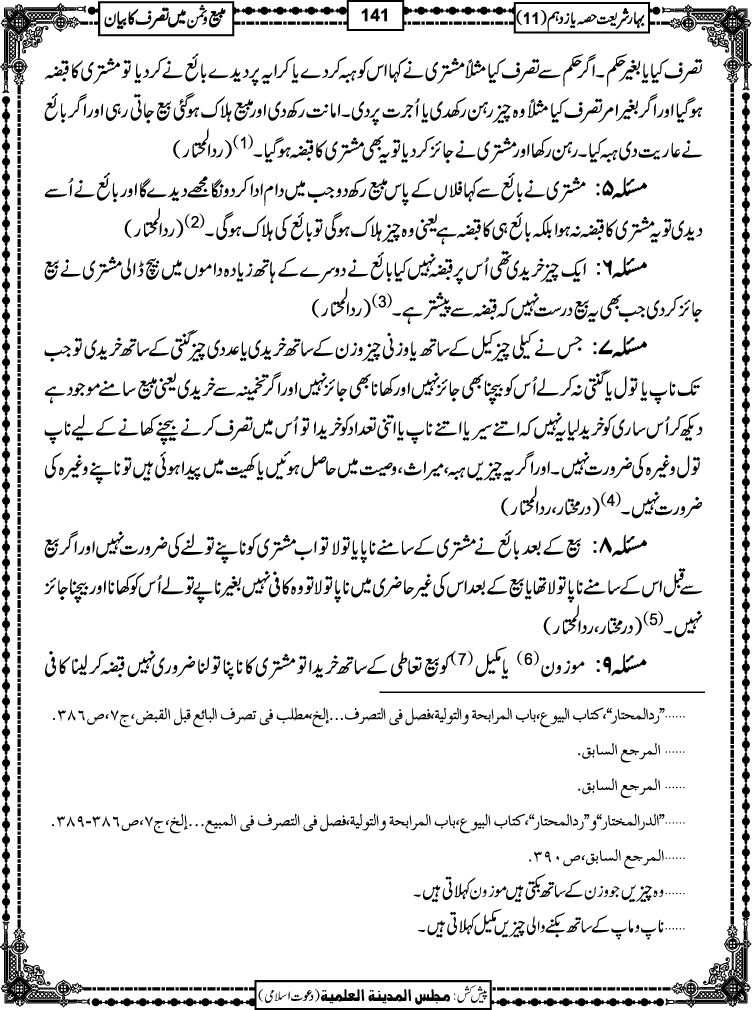 بہار شریعت حصہ یازدہم (11)
141
مبیع و ثمن میں تصرف کا بیان
تصرف کیا یا بغیر حکم۔ اگر حکم سے تصرف کیا مثلاً مشتری نے کہا اس کو ہبہ کردے یا کرایہ پر دیدے بائع نے کردیا تو مشتری کا قبضہ
ہوگیا اور اگر بغیر امر تصرف کیا مثلاً وہ چیز رہن رکھدی یا اُجرت پر دی۔ امانت رکھ دی اور مبیع ہلاک ہوگئی بیع جاتی رہی اور اگر بائع
نے عاریت دی ہبہ کیا۔ رہن رکھا اور مشتری نے جائز کردیا تو یہ بھی مشتری کا قبضہ ہوگیا۔(1) (ردالمحتار)
مسئلہ ۵: مشتری نے بائع سے کہا فلاں کے پاس مبیع رکھ دو جب میں دام ادا کردونگا مجھے دیدے گا اور بائع نے اُسے
دیدی تو یہ مشتری کا قبضہ نہ ہوا بلکہ بائع ہی کا قبضہ ہے یعنی وہ چیز ہلاک ہوگی تو بائع کی ہلاک ہوگی۔(2) (ردالمحتار)
مسئلہ ۶: ایک چیز خریدی تھی اُس پر قبضہ نہیں کیا بائع نے دوسرے کے ہاتھ زیادہ داموں میں بیچ ڈالی مشتری نے بیع
جائز کردی جب بھی یہ بیع درست نہیں کہ قبضہ سے پیشتر ہے۔(3) (ردالمحتار)
مسئلہ ۷: جس نے کیلی چیز کیل کے ساتھ یا وزنی چیز وزن کے ساتھ خریدی یا عددی چیز گنتی کے ساتھ خریدی تو جب
تک ناپ یا تول یا گنتی نہ کرلے اُس کو بیچنا بھی جائز نہیں اور کھانا بھی جائز نہیں اور اگر تخمینہ سے خریدی یعنی مبیع سامنے موجود ہے
دیکھ کر اُس ساری کو خرید لیا یہ نہیں کہ اتنے سیر یا اتنے ناپ یا اتنی تعداد کو خریدا تو اُس میں تصرف کرنے بیچنے کھانے کے لیے ناپ
تول وغیرہ کی ضرورت نہیں۔ اور اگر یہ چیزیں ہبہ، میراث، وصیت میں حاصل ہوئیں یا کھیت میں پیدا ہوئی ہیں تو ناپنے وغیرہ کی
ضرورت نہیں۔(4) (درمختار، ردالمحتار)
مسئلہ ۸: بیع کے بعد بائع نے مشتری کے سامنے ناپا یا تولا تو اب مشتری کو ناپنے تولنے کی ضرورت نہیں اور اگر بیع
سے قبل اس کے سامنے ناپا تولا تھا یا بیع کے بعد اس کی غیر حاضری میں ناپا تولا تو وہ کافی نہیں بغیر ناپے تولے اُس کو کھانا اور بیچنا جائز
نہیں۔(5) (درمختار، ردالمحتار)
مسئلہ ۹: موزون(6) یا مکیل(7) کو بیع تعاطی کے ساتھ خریدا تو مشتری کا ناپنا تولنا ضروری نہیں قبضہ کرلینا کافی
......"ردالمحتار"، کتاب البیوع، باب المرابحة والتولیة، فصل فی التصرف...إلخ، مطلب فی تصرف البائع قبل القبض، ج۷، ص۳۸۶.
...... المرجع السابق.
...... المرجع السابق.
......"الدرالمختار" و"ردالمحتار"، کتاب البیوع، باب المرابحة والتولیة، فصل فی التصرف فی المبیع...إلخ، ج۷، ص۳۸۶-۳۸۹.
......المرجع السابق، ص۳۹۰.
......وہ چیزیں جو وزن کے ساتھ بکتی ہیں موزون کہلاتی ہیں۔
......ناپ و ماپ کے ساتھ بکنے والی چیزیں مکیل کہلاتی ہیں۔
پیش کش: مجلس المدینة العلمیة (دعوت اسلامی)